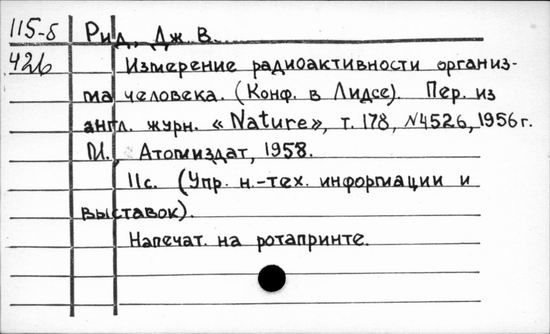 115-5 Рид, Дж. В.
426 Измерение радиоактивности организ-
ма человека. (Конф. в Лидсе). Пер. из
англ. журн. «Nature», т. 178, N4526, 1956 г.
М., Атомиздат, 1958.
11 с. (Упр. н.-тех. информации и
выставок).
Напечат. на ротапринте.